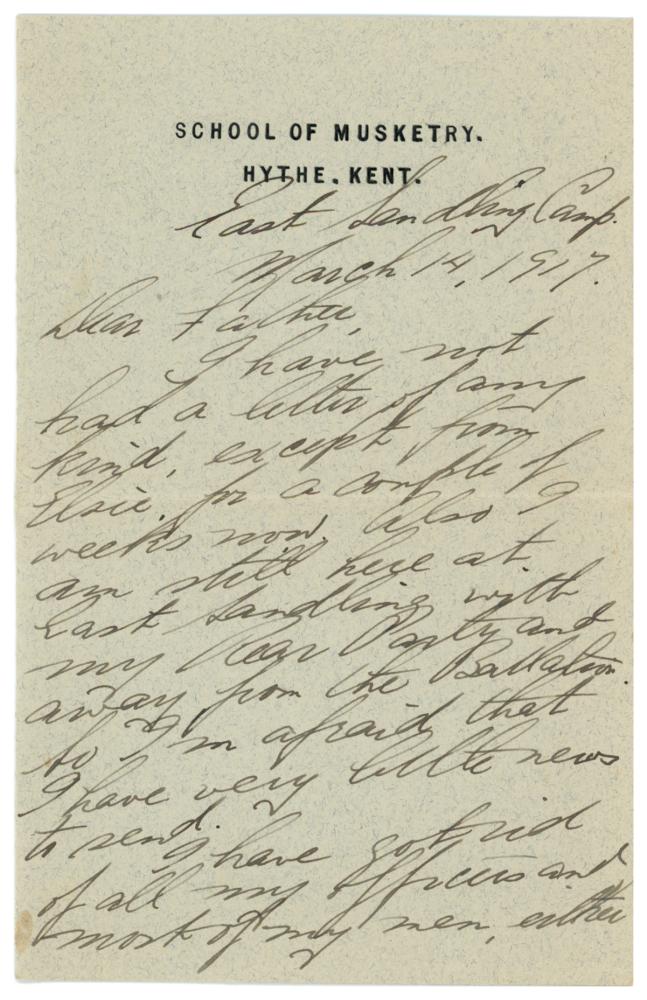 SCHOOL OF MUSKETRY.
HYTHE. KENT.
East Sandling Camp.
March 14, 1917.
Dear Father,
I have not
had a letter of any
kind, except from
Elsie, for a couple of
weeks now. Also I
am still here at
East Sandling with
my Rear Party and
away from the Battalion.
So I'm afraid that
I have very little news
to send.
I have got rid
of all my officers and
most of my men, either